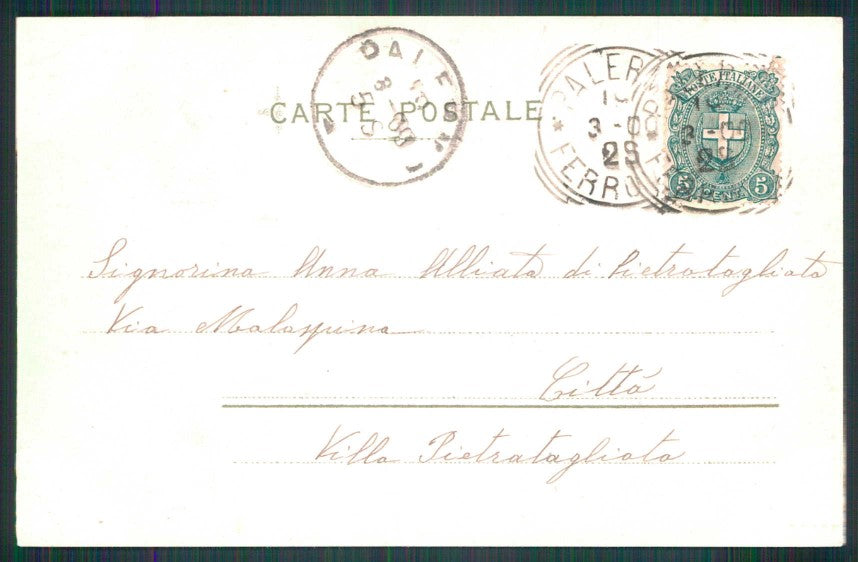 CARTE POSTALE
PALERMO
3-00
5S
PALERMO
10
3-00
2S
FERRO
POSTE ITALIANE
5 CENT. 5
Signorina Anna Alliata di Pietratagliata
Via Malaspina
Città
Villa Pietratagliata